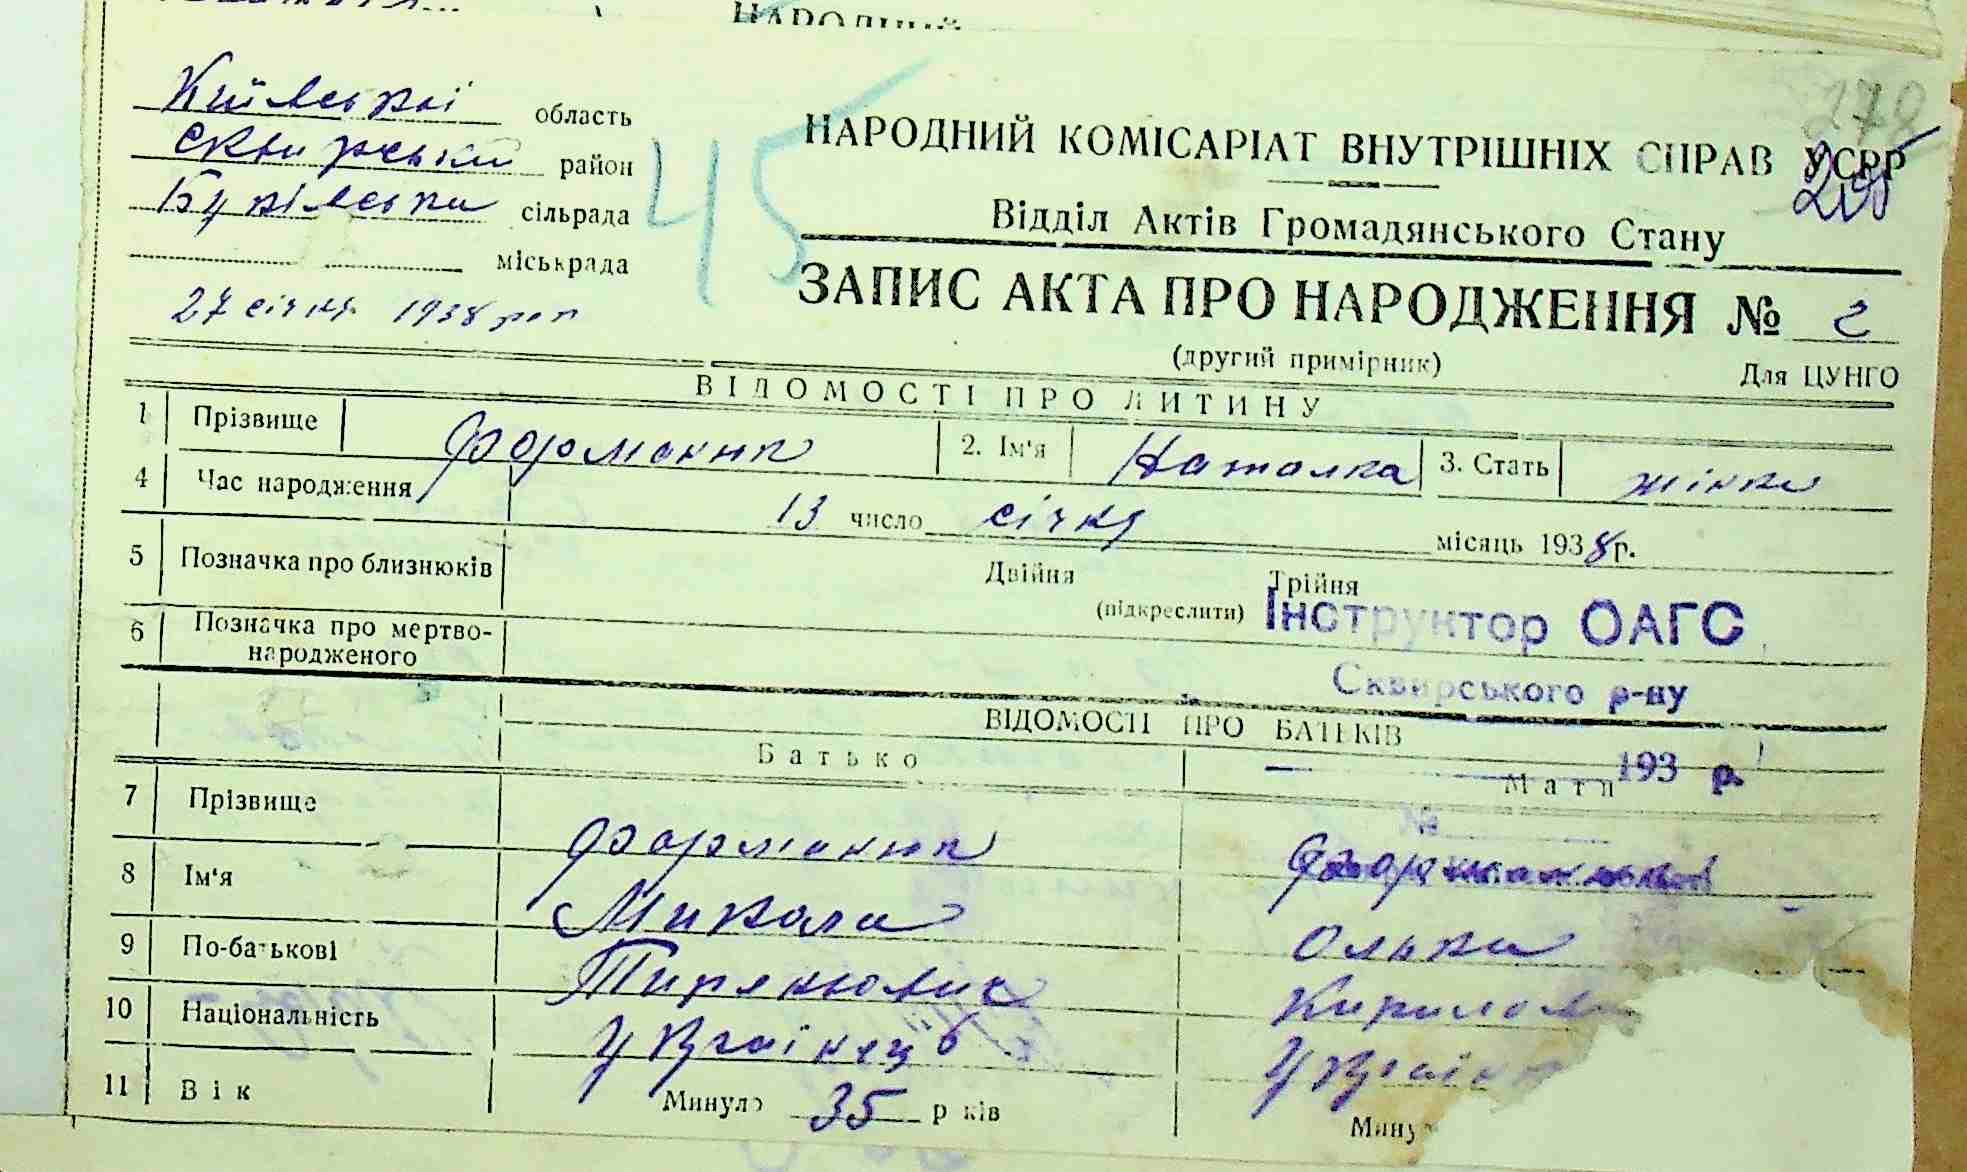 НАРОДНИЙ
Київської область
Сквирський район
Буківська сільрада
міськрада
27 січня 1938 рок
45
278
НАРОДНИЙ КОМІСАРІАТ ВНУТРІШНІХ СПРАВ УСРР
Відділ Актів Громадянського Стану
ЗАПИС АКТА ПРО НАРОДЖЕННЯ № 2
(другий примірник) Для ЦУНГО
ВІДОМОСТІ ПРО ДИТИНУ
1 Прізвище Форманюк 2. Ім'я Наталка 3. Стать жінка
4 Час народження 13 число січня місяць 1938 р.
5 Позначка про близнюків Двійня Трійня
(підкреслити)
Інструктор ОАГС
6 Позначка про мертво-
народженого
Сквирського р-ну
ВІДОМОСТІ ПРО БАТЬКІВ
Батько Мати
193 р.
№
7 Прізвище Форманюк
8 Ім'я Микола Олька
9 По-батькові Кирилов
10 Національність Українець Україн
11 Вік Минуло 35 років Мину